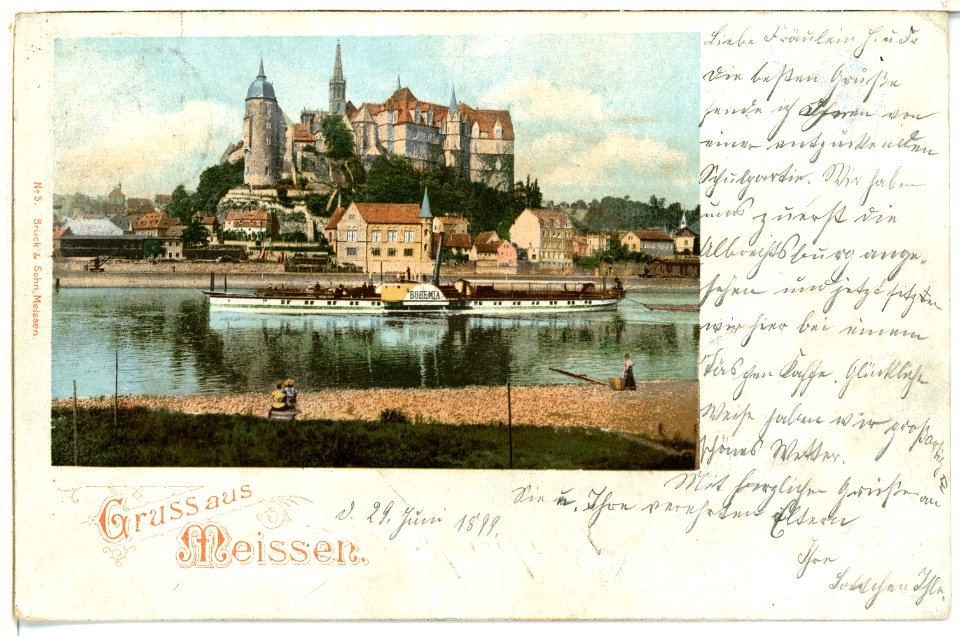 No 5. Brück & Sohn, Meissen.
BOHEMIA
Gruss aus
Meissen.
d. 29. Juni 1899.
Liebe Fräulein
die besten Grüße
sende ich Ihnen von
einer entzückenden
Schulpartie. Wir haben
uns zuerst die
Albrechtsburg ange-
sehen und jetzt sitzen
wir hier bei einem
Täschen Kaffe. Glückliche
Weise haben wir großartig
schönes Wetter.
Mit herzlichen Grüße an
Sie u. Ihre verehrten Eltern
Ihre
Lottchen Ihle.